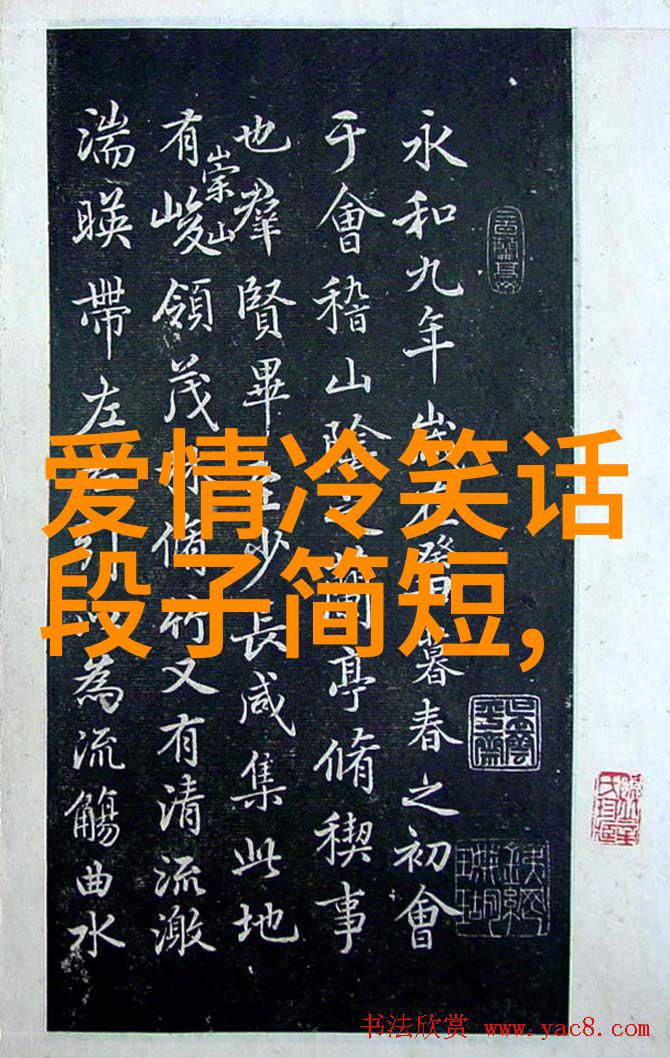 爱情冷笑话
段子简短,
永和九年歲在癸丑暮春之初會
于會稽山陰之蘭亭脩稧事
也羣賢畢至少長咸集此地
有崇山峻領茂林脩竹又有清流激
湍暎帶左右引以為流觴曲水
书法欣赏 www.yac8.com